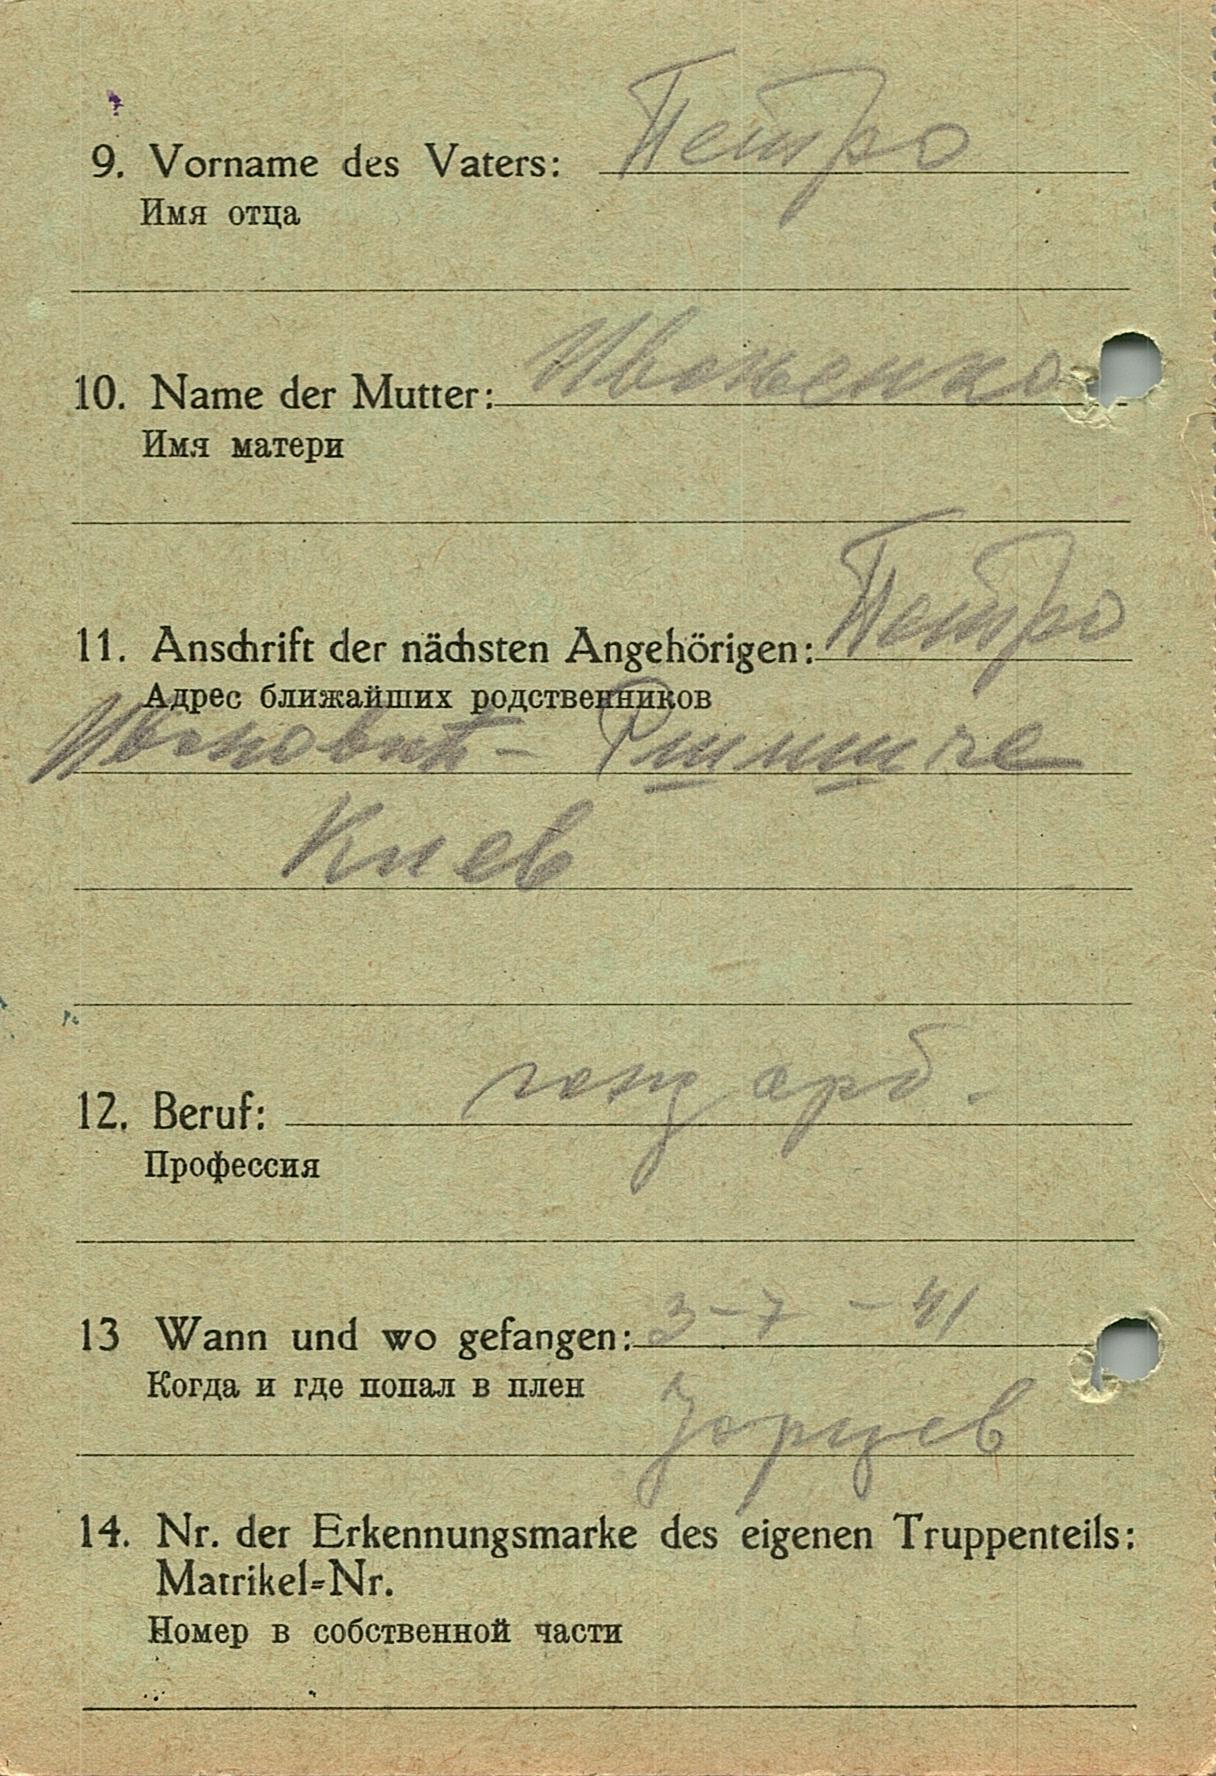 9. Vorname des Vaters: Петро
Имя отца
10. Name der Mutter: Ивоненко
Имя матери
11. Anschrift der nächsten Angehörigen: Петро
Адрес ближайших родственников
Киев
12. Beruf:
Профессия
13 Wann und wo gefangen: 3-7-41
Когда и где попал в плен
14. Nr. der Erkennungsmarke des eigenen Truppenteils:
Matrikel=Nr.
Номер в собственной части